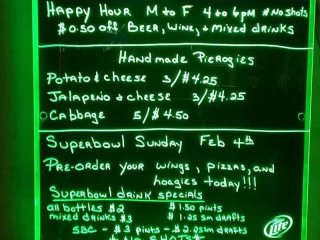 Happy Hour M to F 4 to 6pm #No Shots
$0.50 off Beer, Wine, + Mixed drinks
Handmade Pierogies
Potato & cheese 3/$4.25
Jalapeño & cheese 3/$4.25
Cabbage 5/$4.50
Superbowl Sunday Feb 4th
Pre-order your wings, pizzas, and
hoagies today!!!
Superbowl drink specials
all bottles $2 $1.50 pints
mixed drinks $3 $1.25 sm drafts
SBC - $3 pints - $2.25 sm drafts
Lite